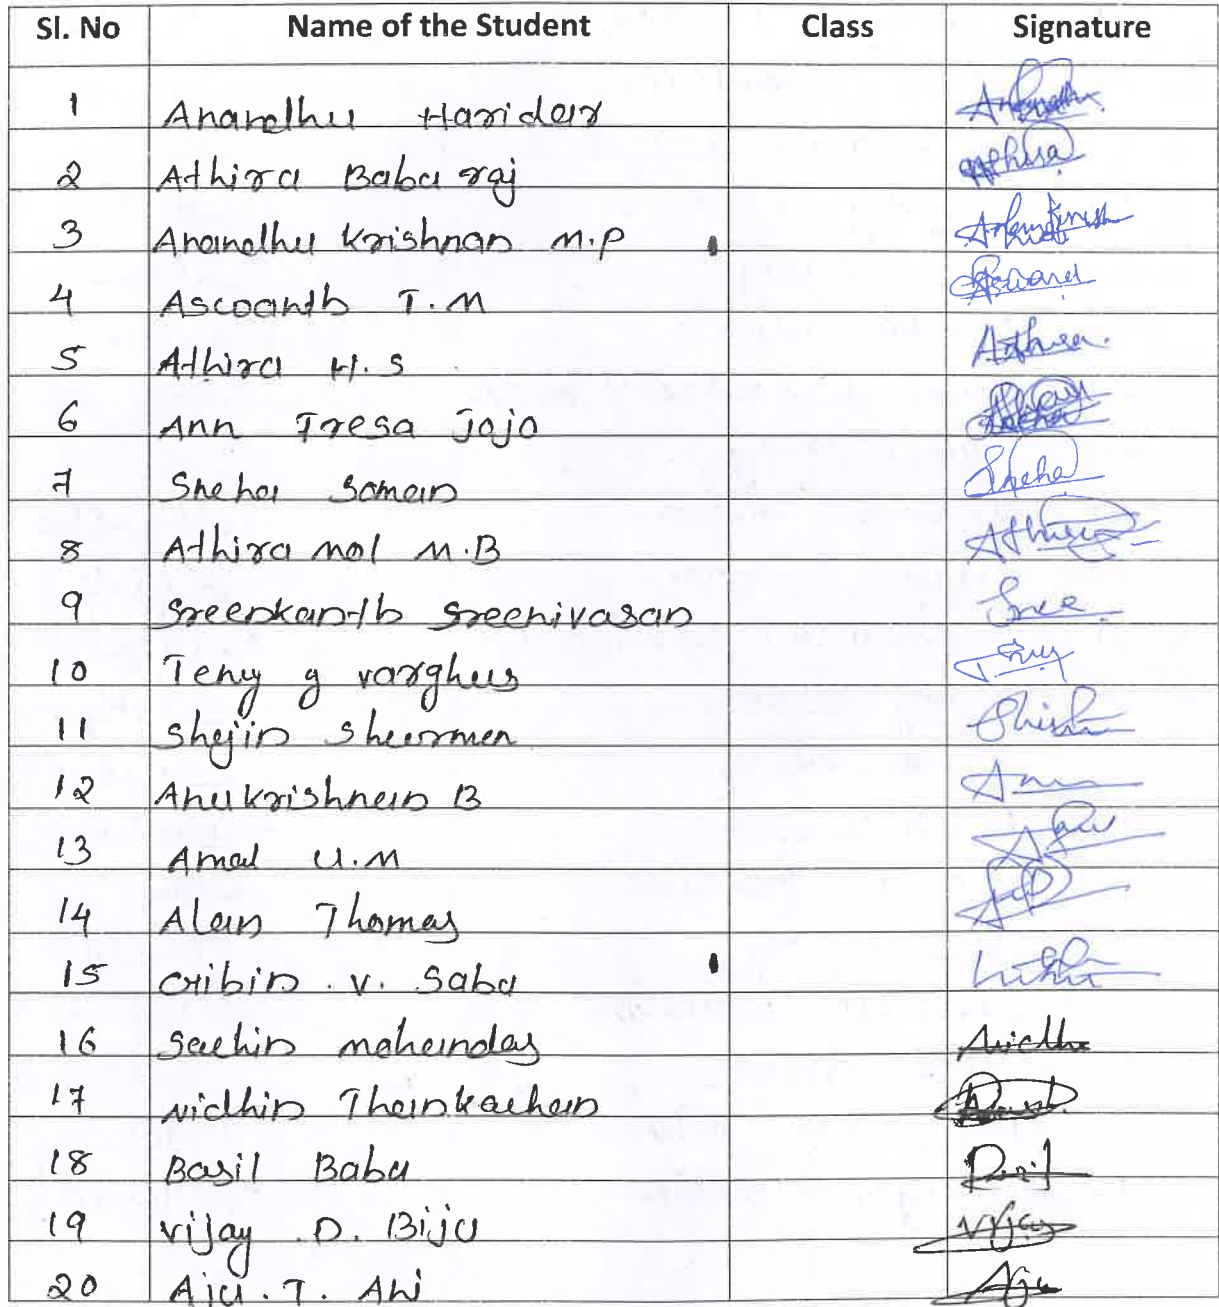 Sl. No Name of the Student Class Signature
1 Anandhu Haridas Anandhu
2 Athira Babu raj Athira
3 Anandhu Krishnan M.P
4 Aswanth T.M Aswand
5 Athira H.S Athira.
6 Ann Tresa Jojo
7 Sneha Soman Sneha
8 Athira mol M.B Athira
9 Sreenkanth Sreenivasan Sree
10 Teny g varghus Teny
11 Shejin
12 Anukrishnan B Anu
13 Amal U.M
14 Alan Thomas
15 V. Sabu
16 Sachin mohandas Nidhi
17 Nidhin Thankachan
18 Basil Babu Basil
19 Vijay .D. Biju Vijay
20 Aju. T. Aju